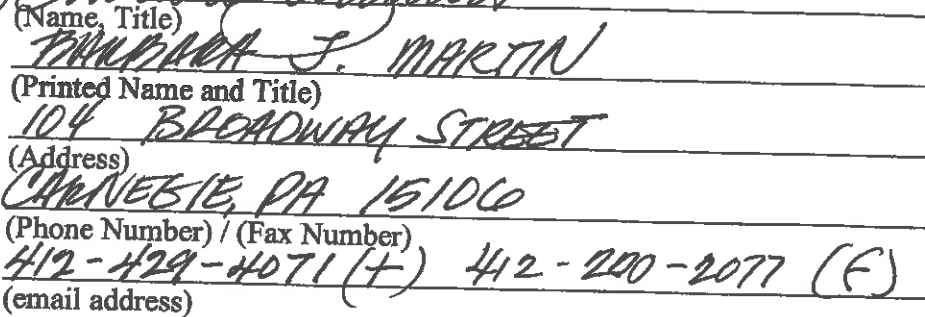 (Name, Title)
BARBARA J. MARTIN
(Printed Name and Title)
104 BROADWAY STREET
(Address)
CARNEGIE, PA 15106
(Phone Number) / (Fax Number)
412-429-4071 (t) 412-200-2077 (F)
(email address)